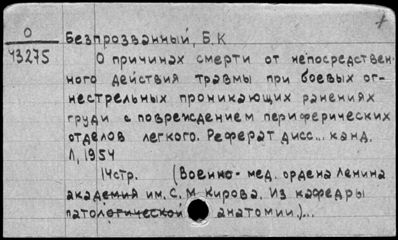 О
43275
Безпрозванный, Б.К
О причинах смерти от непосредствен-
ного действия травмы при боевых ог-
нестрельных проникающих ранениях
груди с повреждением периферических
отделов легкого. Реферат дисс... канд.
Л, 1954
14стр. (Военно- мед. ордена Ленина
академия им. С. М Кирова. Из кафедры
патологической анатомии.)...